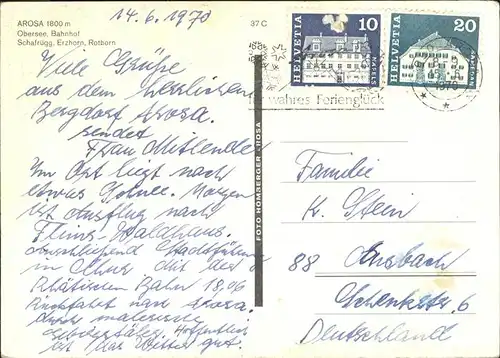 14.6.1970
AROSA 1800 m
Obersee, Bahnhof
Schafrügg, Erzhorn, Rothorn
37 C
HELVETIA 10
HELVETIA 20
1970
für wahres Ferienglück
FOTO HOMBERGER · AROSA
Viele Grüße
aus dem herrlichen
Bergdorf Arosa.
sendet
Frau Mitlender
Im Ort liegt noch
etwas Schnee. Morgen
ist Ausflug nach
Flims-Waldhaus.
anschließend Stadtführung
in Chur. Mit der
Rhätischen Bahn 18,06
Rückfahrt nach Arosa.
durch malerische
Hoffentlich
ist das Wetter gut.
Familie
K. Stein
88 Ansbach
Schenkstr. 6
Deutschland